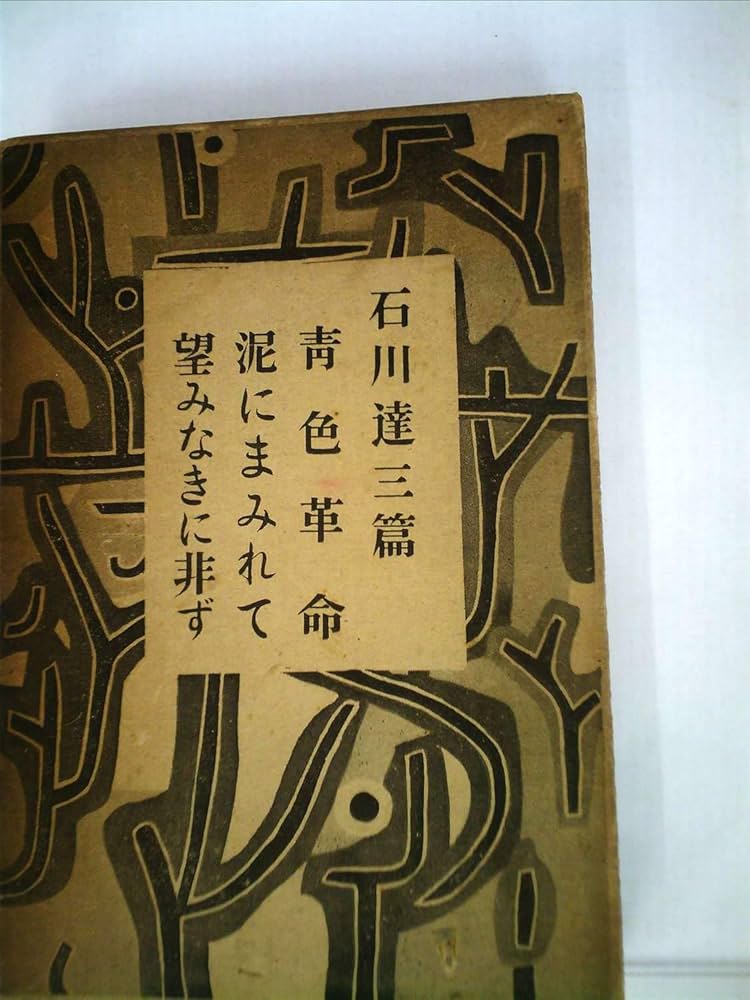 石川達三篇
靑色革命
泥にまみれて
望みなきに非ず